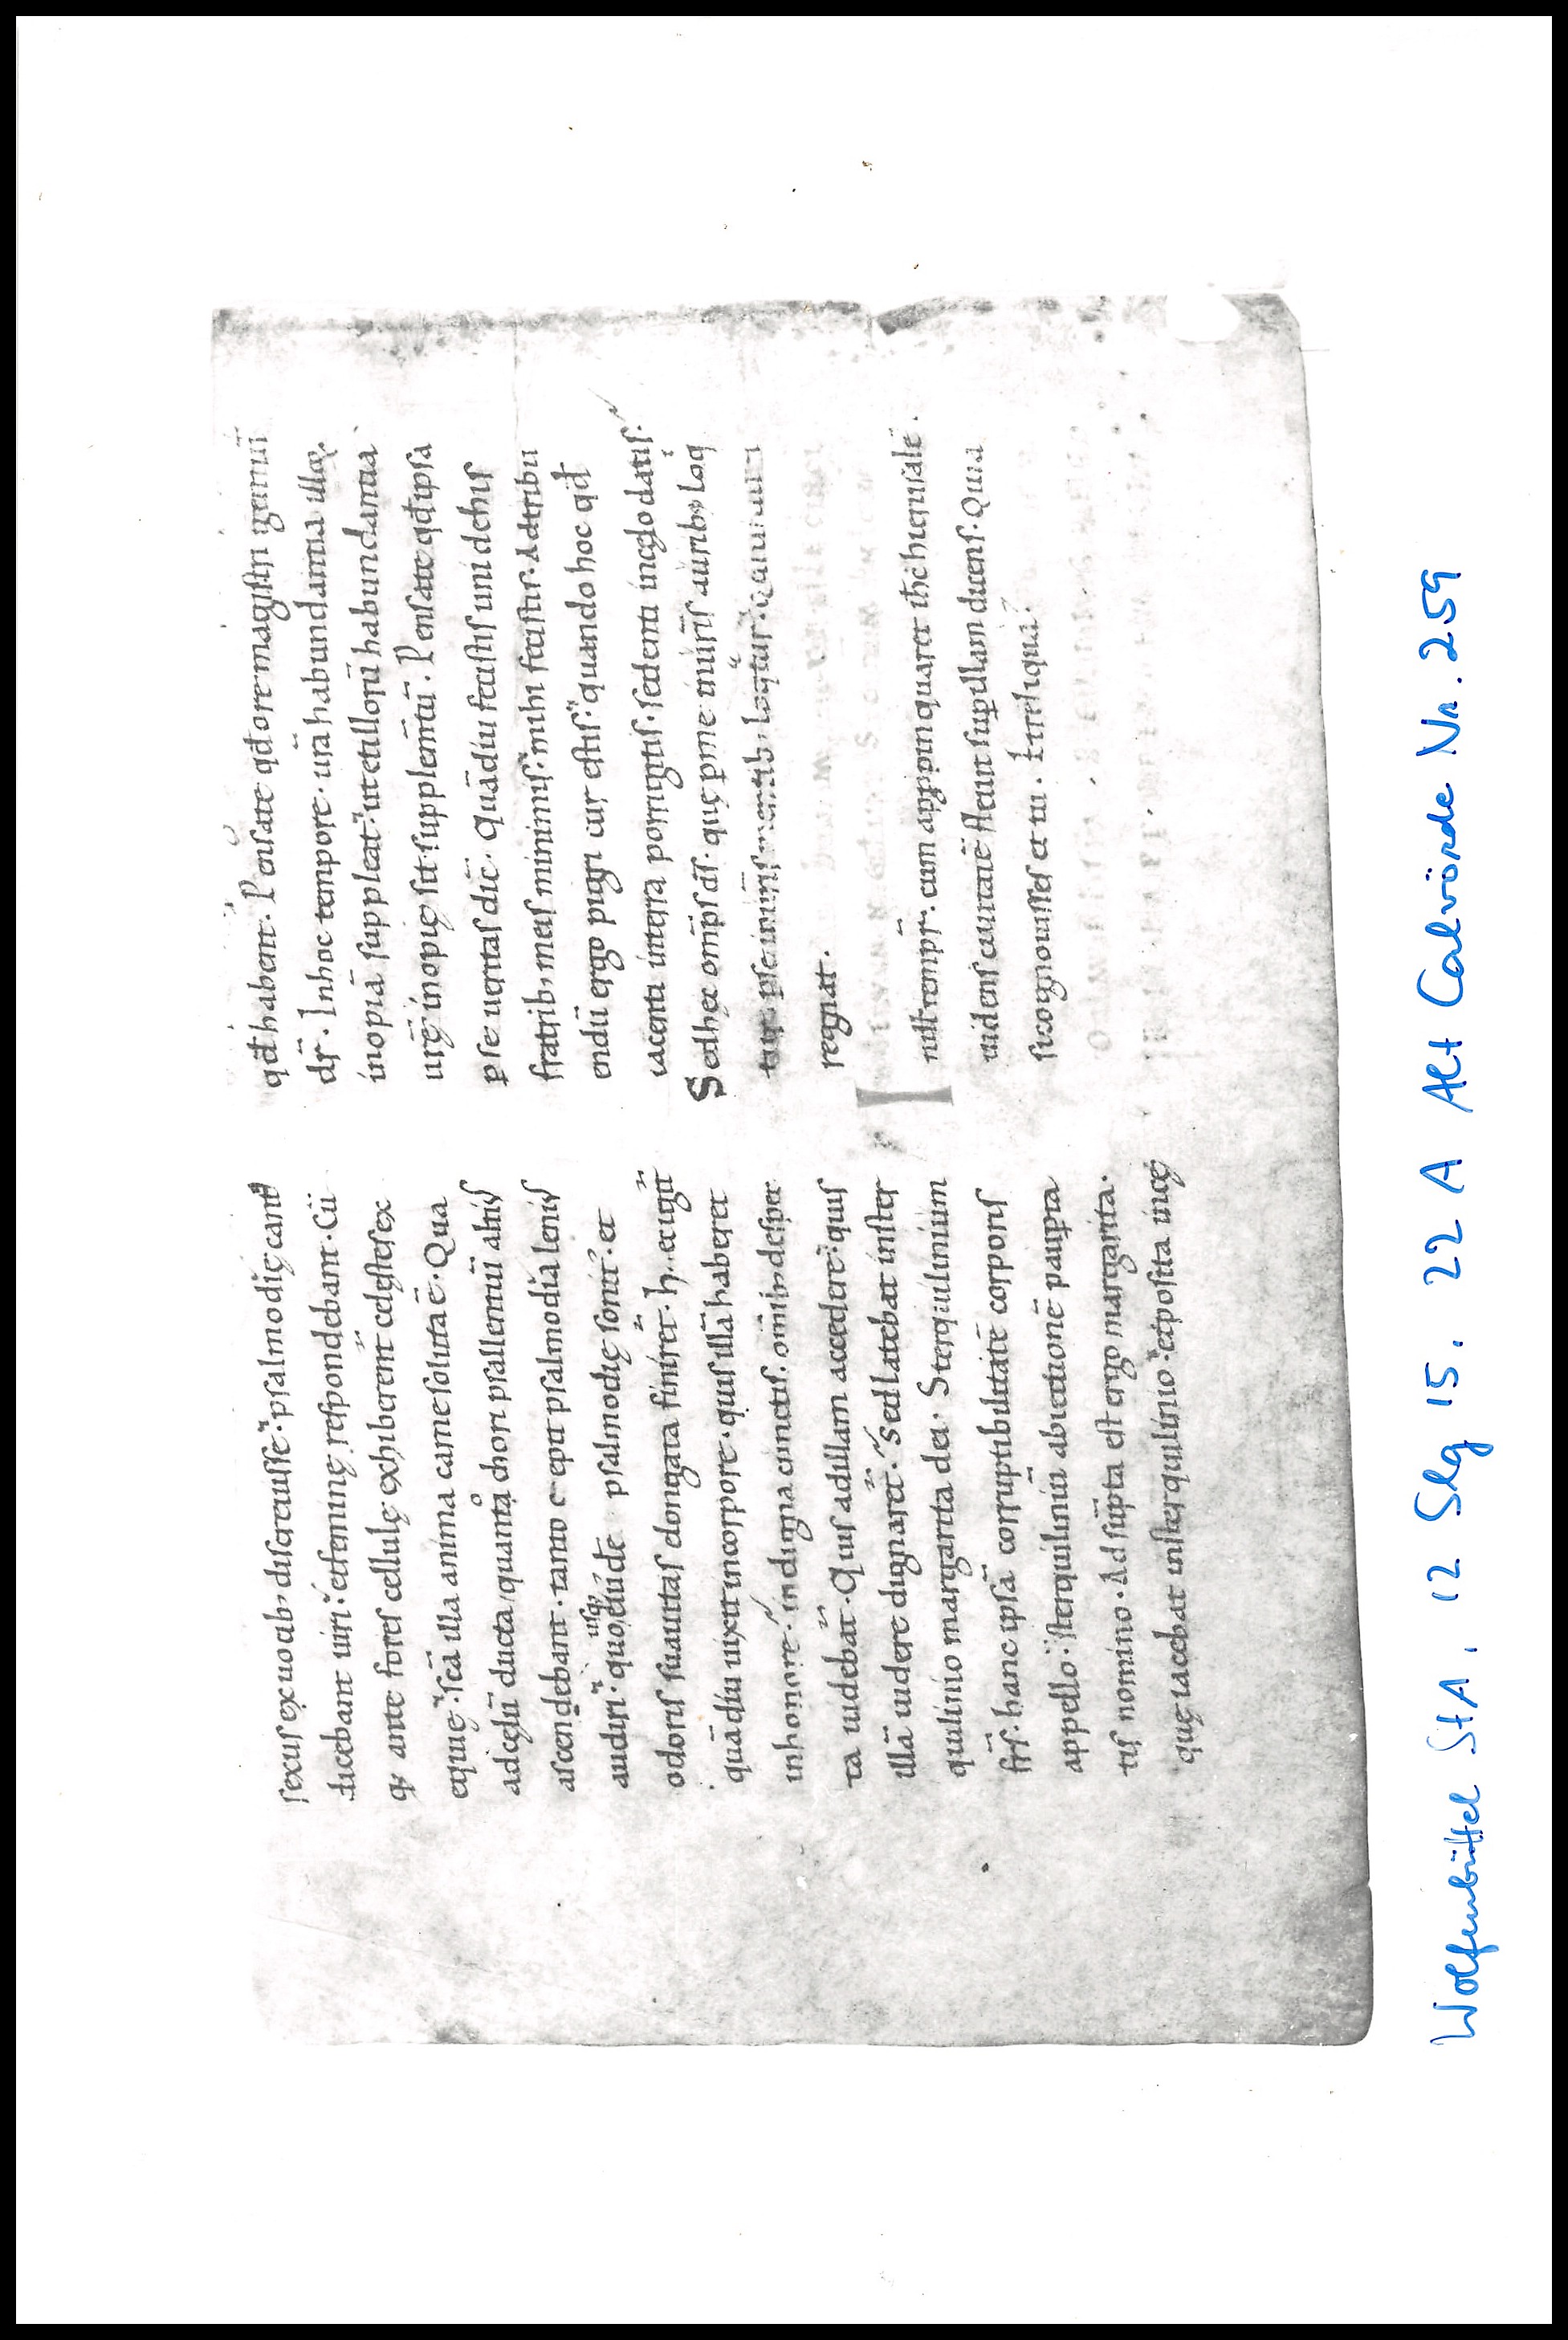 sexus ex uocib; discreuisse. psalmodię cant᷒
dicebant uiri. et feminę respondebant. Cū
q; ante fores cellulę exhiberent cęlestes ex
equię. scā illa anima carne soluta ē. Qua
ad cęlū ducta, quanto chori psallentiū altius
ascendebant. tanto cepit psalmodia lenius
audiri. quo usq; eiusdē psalmodię sonit᷒. et
odoris suauitas elongata finiret. h. ec igit
quādiu uixit in corpore. quis illā haberet
in honore. indigna cunctis. omīb; despec
ta uidebat. Quis ad illam accedere. quis
illā uidere dignaret. Sed latebat in ster
quilinio margarita dei. Sterquilinium
frs̄. hanc ipsā corruptibilitatē corporis
appello. sterquiliniū abiectionē paup̱ta
tis nomino. Adsūpta est ergo margarita.
quę iacebat in sterquilinio. et posita in cę
qđ habent. Pensate qđ ore magistri gentiū
dr̄. In hoc tempore. ura habundantia illoꝝ
inopiā suppleat. ut et illorū habundantia
urę inopię sit supplem̄tū. Pensate qđ ipsa
p̱ se ueritas dic̄. Quādiu fecistis uni de his
fratrib; meis minimis. mihi fecistis. Ad tribu
endū ergo pigri cur estis. quando hoc qđ
iacenti in terra porrigitis. sedenti in cęlo datis.
Sed hęc omp̄s ds̄. quę p̱ me in uris̄ aurib; loq
tur. p̱ se in uris̄ mentib; loqtur. Qui uiuit
regnat.
I
nill̄ tempr̄. cum appinquaret ihc̄ hierusalē.
uidens ciuitatē fleuit sup̱ illam dicens. Quia
si cognouisses et tu. Et reliqua.
Wolfenbüttel StA, 12 Slg 15. 22 A Alt Calvörde Nr. 259